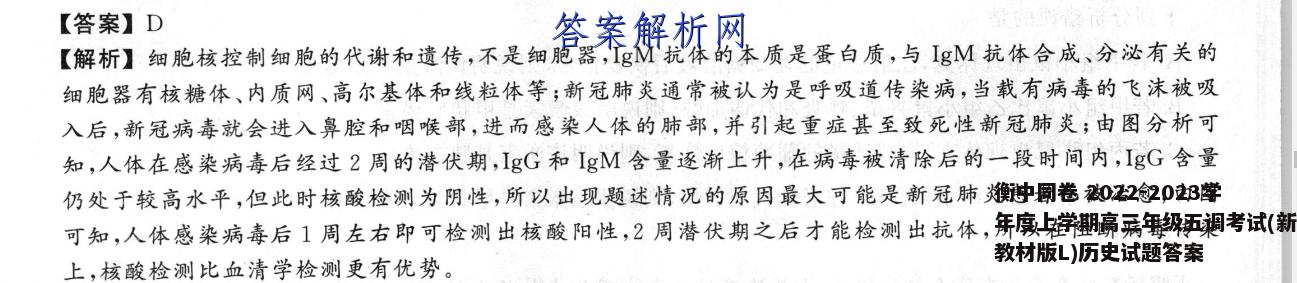 【答案】D
答案解析网
【解析】细胞核控制细胞的代谢和遗传,不是细胞器,IgM 抗体的本质是蛋白质,与 IgM 抗体合成、分泌有关的
细胞器有核糖体、内质网、高尔基体和线粒体等;新冠肺炎通常被认为是呼吸道传染病,当载有病毒的飞沫被吸
入后,新冠病毒就会进入鼻腔和咽喉部,进而感染人体的肺部,并引起重症甚至致死性新冠肺炎;由图分析可
知,人体在感染病毒后经过 2 周的潜伏期,IgG 和 IgM 含量逐渐上升,在病毒被清除后的一段时间内,IgG 含量
仍处于较高水平,但此时核酸检测为阴性,所以出现题述情况的原因最大可能是新冠肺
可知,人体感染病毒后 1 周左右即可检测出核酸阳性,2 周潜伏期之后才能检测出抗体,
上,核酸检测比血清学检测更有优势。
衡中同卷 2022-2023学
年度上学期高三年级五调考试(新
教材版L)历史试题答案